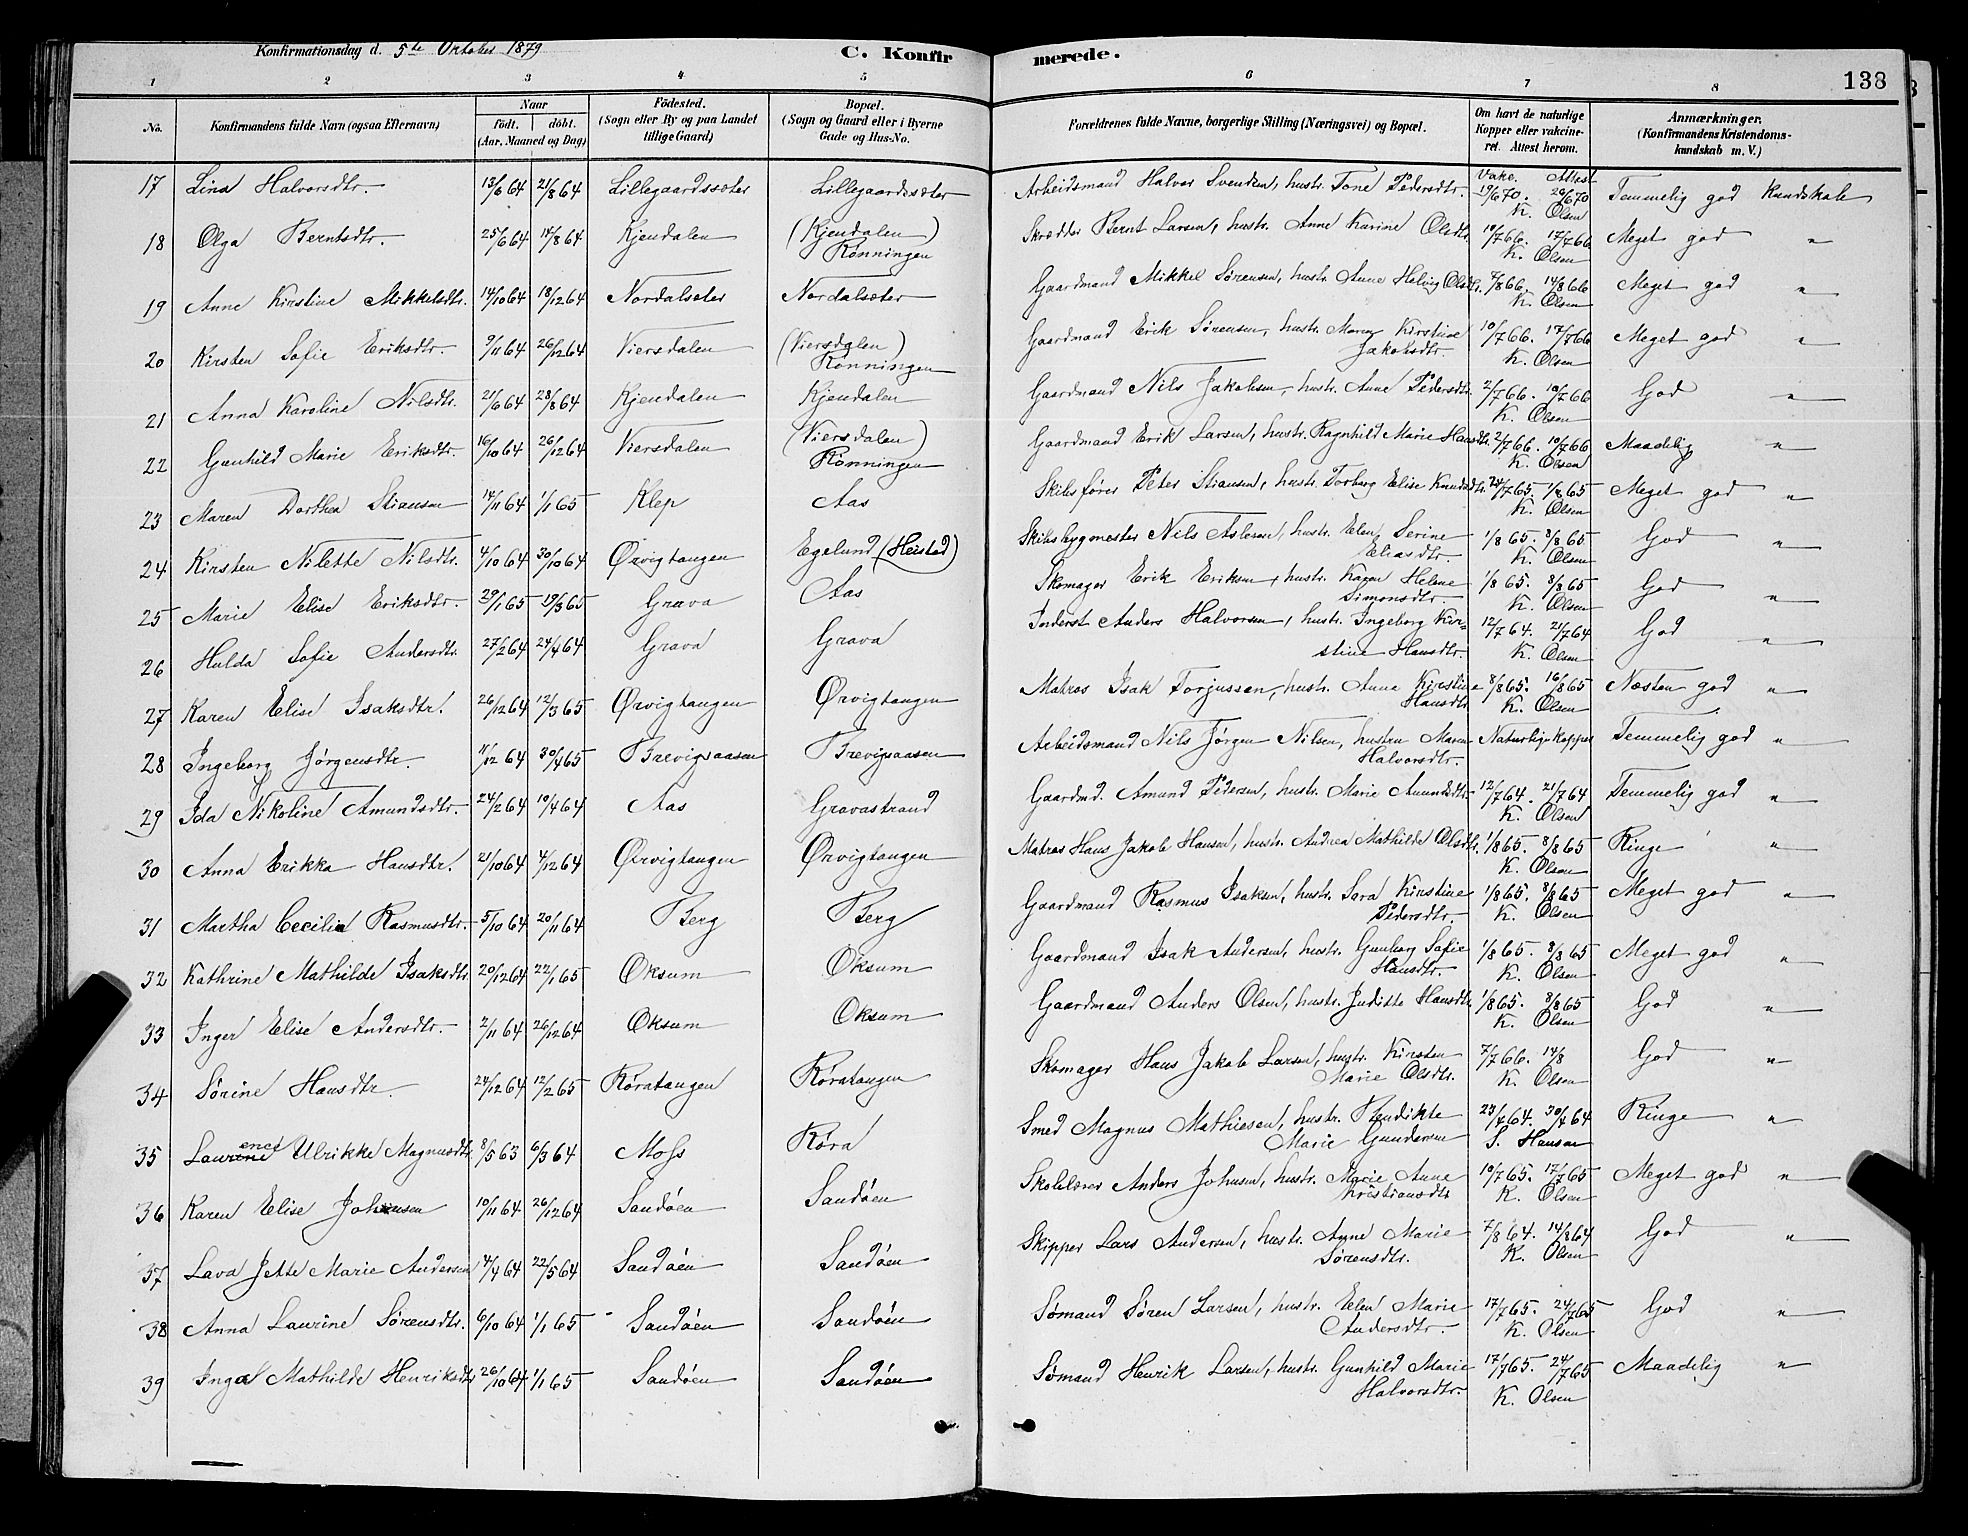 Konfirmationsdag d. 5te Oktober 1879 C. Konfirmerede. 138
1 2 3 4 5 6 7 8
No. Konfirmandens fulde Navn (ogsaa Efternavn) Naar født. døbt. (Aar, Maaned og Dag) Födested. (Sogn eller By og paa Landet tillige Gaard) Bopæl. (Sogn og Gaard eller i Byerne Gade og Hus-No. Forældrenes fulde Navne, borgerlige Stilling (Næringsvei) og Bopæl. Om havt de naturlige Kopper eller vakcineret. Attest herom. Anmærkninger. (Konfirmandens Kristendomskundskab m. V.)
17 Lina Halvorsdtr. 13/6 64 21/8 64 Lillegaardssæter Lillegaardssæter Arbeidsmand Halvor Svendsen, hustr. Tone Pedersdtr. Vakc. Attest 19/6 70. 26/6 70 Temmelig god Kundskab
K. Olsen
18 Olga Berntsdtr. 25/6 64 14/8 64 Kjendalen (Kjendalen) Skrædder Bernt Larsen, hustr. Anne Karine Olsdtr. 10/7 66. 17/7 66 Meget god "
Rønningen K. Olsen
19 Anne Kirstine Mikkelsdtr. 14/10 64 18/12 64 Nordalsæter Nordalsæter Gaardmand Mikkel Sørensen, hustr. Anne Helvig Olsdtr. 7/8 66. 14/8 66 Meget god "
K. Olsen
20 Kirsten Sofie Eriksdtr. 9/11 64 26/12 64 Viersdalen (Viersdalen) Gaardmand Erik Sørensen, hustr. Maren Kirstine 10/7 66. 17/7 66 Meget god "
Rønningen Jakobsdtr. K. Olsen
21 Anna Karoline Nilsdtr. 21/6 64 28/8 64 Kjendalen Kjendalen Gaardmand Nils Jakobsen, hustr. Anne Pedersdtr. 2/7 66. 10/7 66 God "
K. Olsen
22 Gunhild Marie Eriksdtr. 16/10 64 26/12 64 Viersdalen (Viersdalen) Gaardmand Erik Larsen, hustr. Ragnhild Marie Hansdtr. 2/7 66. 10/7 66 Maadelig "
Rønningen K. Olsen
23 Maren Dorthea Stiansen 14/11 64 1/1 65 Klep Aas Skibsfører Peter Stiansen, hustr. Torborg Elise Knudsdtr. 24/7 65. 1/8 65 Meget god "
K. Olsen
24 Kirsten Nilette Nilsdtr. 4/10 64 30/10 64 Ørvigtangen Egelund (Heistad) Skibsbygmester Nils Aslesen, hustr. Elen Serine 1/8 65. 8/8 65 God "
Eliasdtr. K. Olsen
25 Marie Elise Eriksdtr. 29/1 65 19/3 65 Grava Aas Skomager Erik Eriksen, hustr. Karen Helene 1/8 65. 8/8 65 God "
Simonsdtr. K. Olsen
26 Hulda Sofie Andersdtr. 27/2 64 24/4 64 Grava Grava Inderst Anders Halvorsen, hustr. Ingeborg Kir- 12/7 64. 21/7 64 God "
stine Hansdtr. K. Olsen
27 Karen Elise Isaksdtr. 26/12 64 12/3 65 Ørvigtangen Ørvigtangen Matros Isak Torjussen, hustr. Anne Kirstine 8/8 65. 16/8 65 Næsten god "
Hansdtr. K. Olsen
28 Ingeborg Jørgensdtr. 11/12 64 30/4 65 Brevigsaasen Brevigsaasen Arbeidsmand Nils Jørgen Nilsen, hustru Maren Naturlige kopper Temmelig god "
Halvorsdtr.
29 Ida Nikoline Amundsdtr. 24/2 64 10/4 64 Aas Gravastrand Gaardmd. Amund Pedersen, hustr. Marie Amundsdtr. 12/7 64. 21/7 64 Temmelig god "
K. Olsen
30 Anna Erikka Hansdtr. 21/10 64 4/12 64 Ørvigtangen Ørvigtangen Matros Hans Jakob Hansen, hustr. Andrea Mathilde Olsdtr. 1/8 65. 8/8 65 Ringe "
K. Olsen
31 Martha Cecilia Rasmusdtr. 5/10 64 20/11 64 Berg Berg Gaardmand Rasmus Isaksen, hustr. Sara Kirstine 1/8 65. 8/8 65 Meget god "
Pedersdtr. K. Olsen
32 Kathrine Mathilde Isaksdtr. 20/12 64 22/1 65 Oksum Oksum Gaardmand Isak Andersen, hustr. Gunborg Sofie 1/8 65. 8/8 65 Meget god "
Hansdtr. K. Olsen
33 Inger Elise Andersdtr. 2/11 64 26/12 64 Oksum Oksum Gaardmand Anders Olsen, hustr. Juditte Hansdtr. 1/8 65. 8/8 65 God "
K. Olsen
34 Sørine Hansdtr. 24/12 64 12/2 65 Røratangen Røratangen Skomager Hans Jakob Larsen, hustr. Kirsten 7/7 66. 14/8 God "
Marie Olsdtr. K. Olsen
35 Laurine Ulrikke Magnusdtr. 8/5 63 6/3 64 Moss Røra Smed Magnus Mathiesen, hustr. Bendikte 23/4 64. 30/4 64 Ringe "
Marie Gundersen S. Hansen
36 Karen Elise Johnsen 10/11 64 26/12 64 Sandøen Sandøen Skolelærer Anders Johnsen, hustr. Marie Anne 10/7 65. 17/7 65 Meget god "
Kristiansdtr. K. Olsen
37 Lava Jette Marie Andersen 4/4 64 22/5 64 Sandøen Sandøen Skipper Lars Andersen, hustr. Anne Marie 7/8 64. 14/8 64 God "
Sørensdtr. K. Olsen
38 Anna Laurine Sørensdtr. 6/10 64 1/1 65 Sandøen Sandøen Sømand Søren Larsen, hustr. Elen Marie 17/7 65. 24/7 65 God "
Andersdtr. K. Olsen
39 Inga Mathilde Henriksdtr. 26/10 64 1/1 65 Sandøen Sandøen Sømand Henrik Larsen, hustr. Gunhild Marie 17/7 65. 24/7 65 Maadelig "
Halvorsdtr. K. Olsen